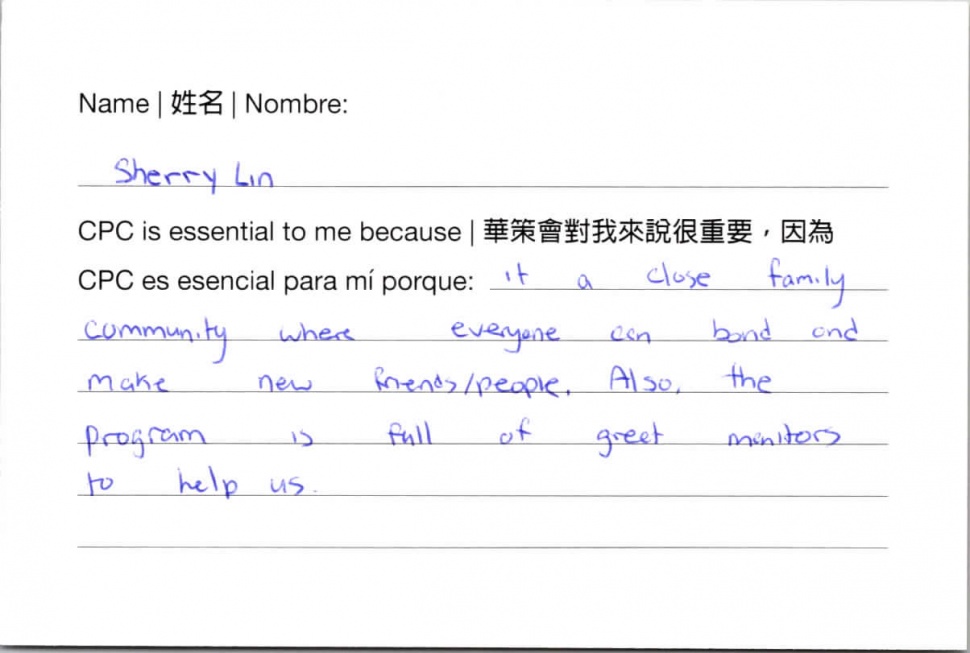 Name | 姓名 | Nombre:
Sherry Lin
CPC is essential to me because | 華策會對我來說很重要，因為
CPC es esencial para mí porque: it a close family
community where everyone can bond and
make new friends/people. Also, the
program is full of great monitors
to help us.